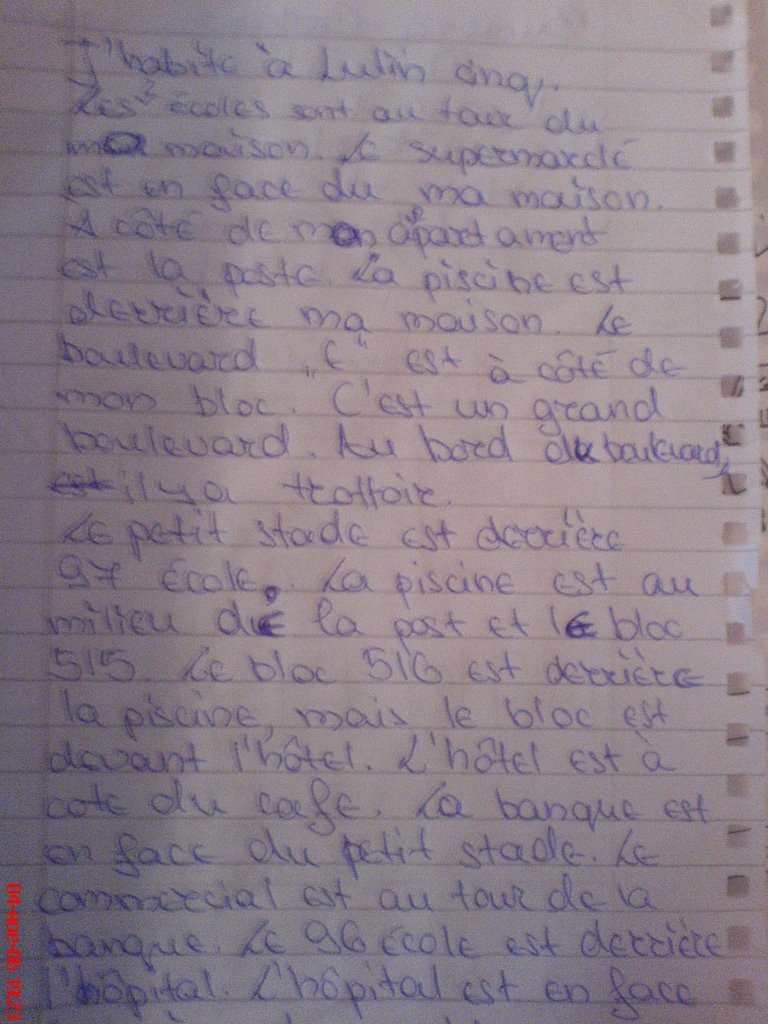 J'habite à Lulin cinq.
Les 2 écoles sont au tour du
ma maison. Le supermarclé
est en face du ma maison.
A côté de mon apartament
est la poste. La piscine est
derrière ma maison. Le
boulevard „E" est à côté de
mon bloc. C'est un grand
boulevard. Au bord du boulevard,
est il y a trottoir.
Le petit stade est derrière
97 école. La piscine est au
milieu de la post et le bloc
515. Le bloc 516 est derrière
la piscine, mais le bloc est
devant l'hôtel. L'hôtel est à
cote du cafe. La banque est
en face du petit stade. Le
commercial est au tour de la
banque. Le 96 école est derrière
l'hôpital. L'hôpital est en face